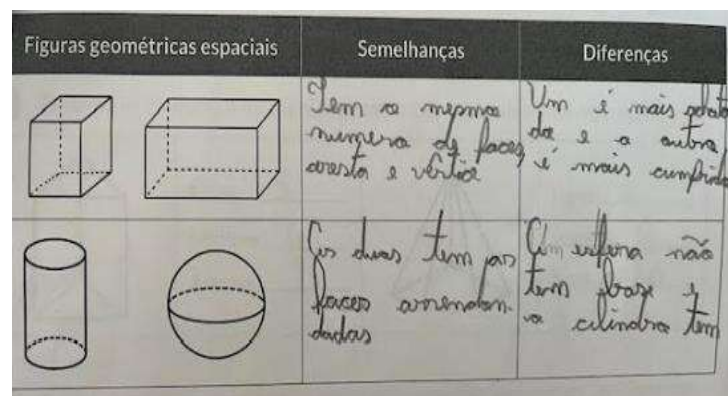 Figuras geométricas espaciais
Semelhanças
Diferenças
Tem o mesmo
numero de faces,
aresta e vértice
Um é mais
do e o outro
é mais cumprido
As duas tem as
faces arrendon-
dadas
A esfera não
tem base e
o cilindro tem